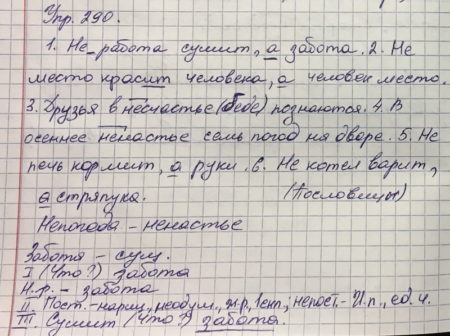 Упр. 290.
1. Не работа сушит, а забота. 2. Не
место красит человека, а человек место.
3. Друзья в несчастье (беде) познаются. 4. В
осеннее ненастье семь погод на дворе. 5. Не
печь кормит, а руки. 6. Не котел варит,
а стряпуха. (Пословицы)
Непогода - ненастье
Забота - сущ.
I (Что?) забота
Н.ф. - забота
II Пост. - нариц., неодуш., ж.р., 1 скл.; непост. - И.п., ед.ч.
III Сушит (Что?) забота.